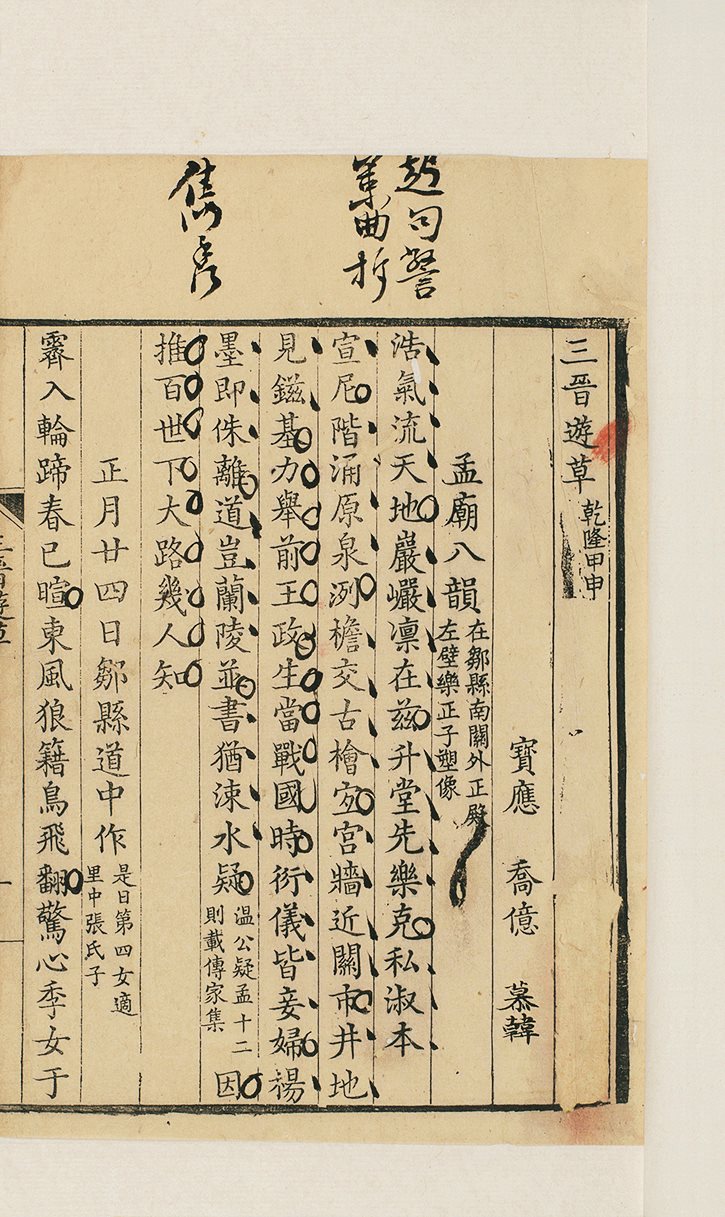 起句警
策曲折
雋秀
三晉遊草 乾隆甲申
寶應 喬億 慕韓
孟廟八韻 在鄒縣南關外正殿
左壁樂正子塑像
浩氣流天地巖巖凜在兹升堂先樂克私淑本
宣尼階涌原泉洌檐交古檜宐宮牆近關市井地
見鎡基力舉前王政生當戰國時衍儀皆妾婦楊
墨即侏離道豈蘭陵並書猶涑水疑 温公疑孟十二
則載傳家集 因
推百世下大路幾人知
正月廿四日鄒縣道中作 是日第四女適
里中張氏子
霽入輪蹄春已暄東風狼籍鳥飛翻驚心季女于
三晉遊草